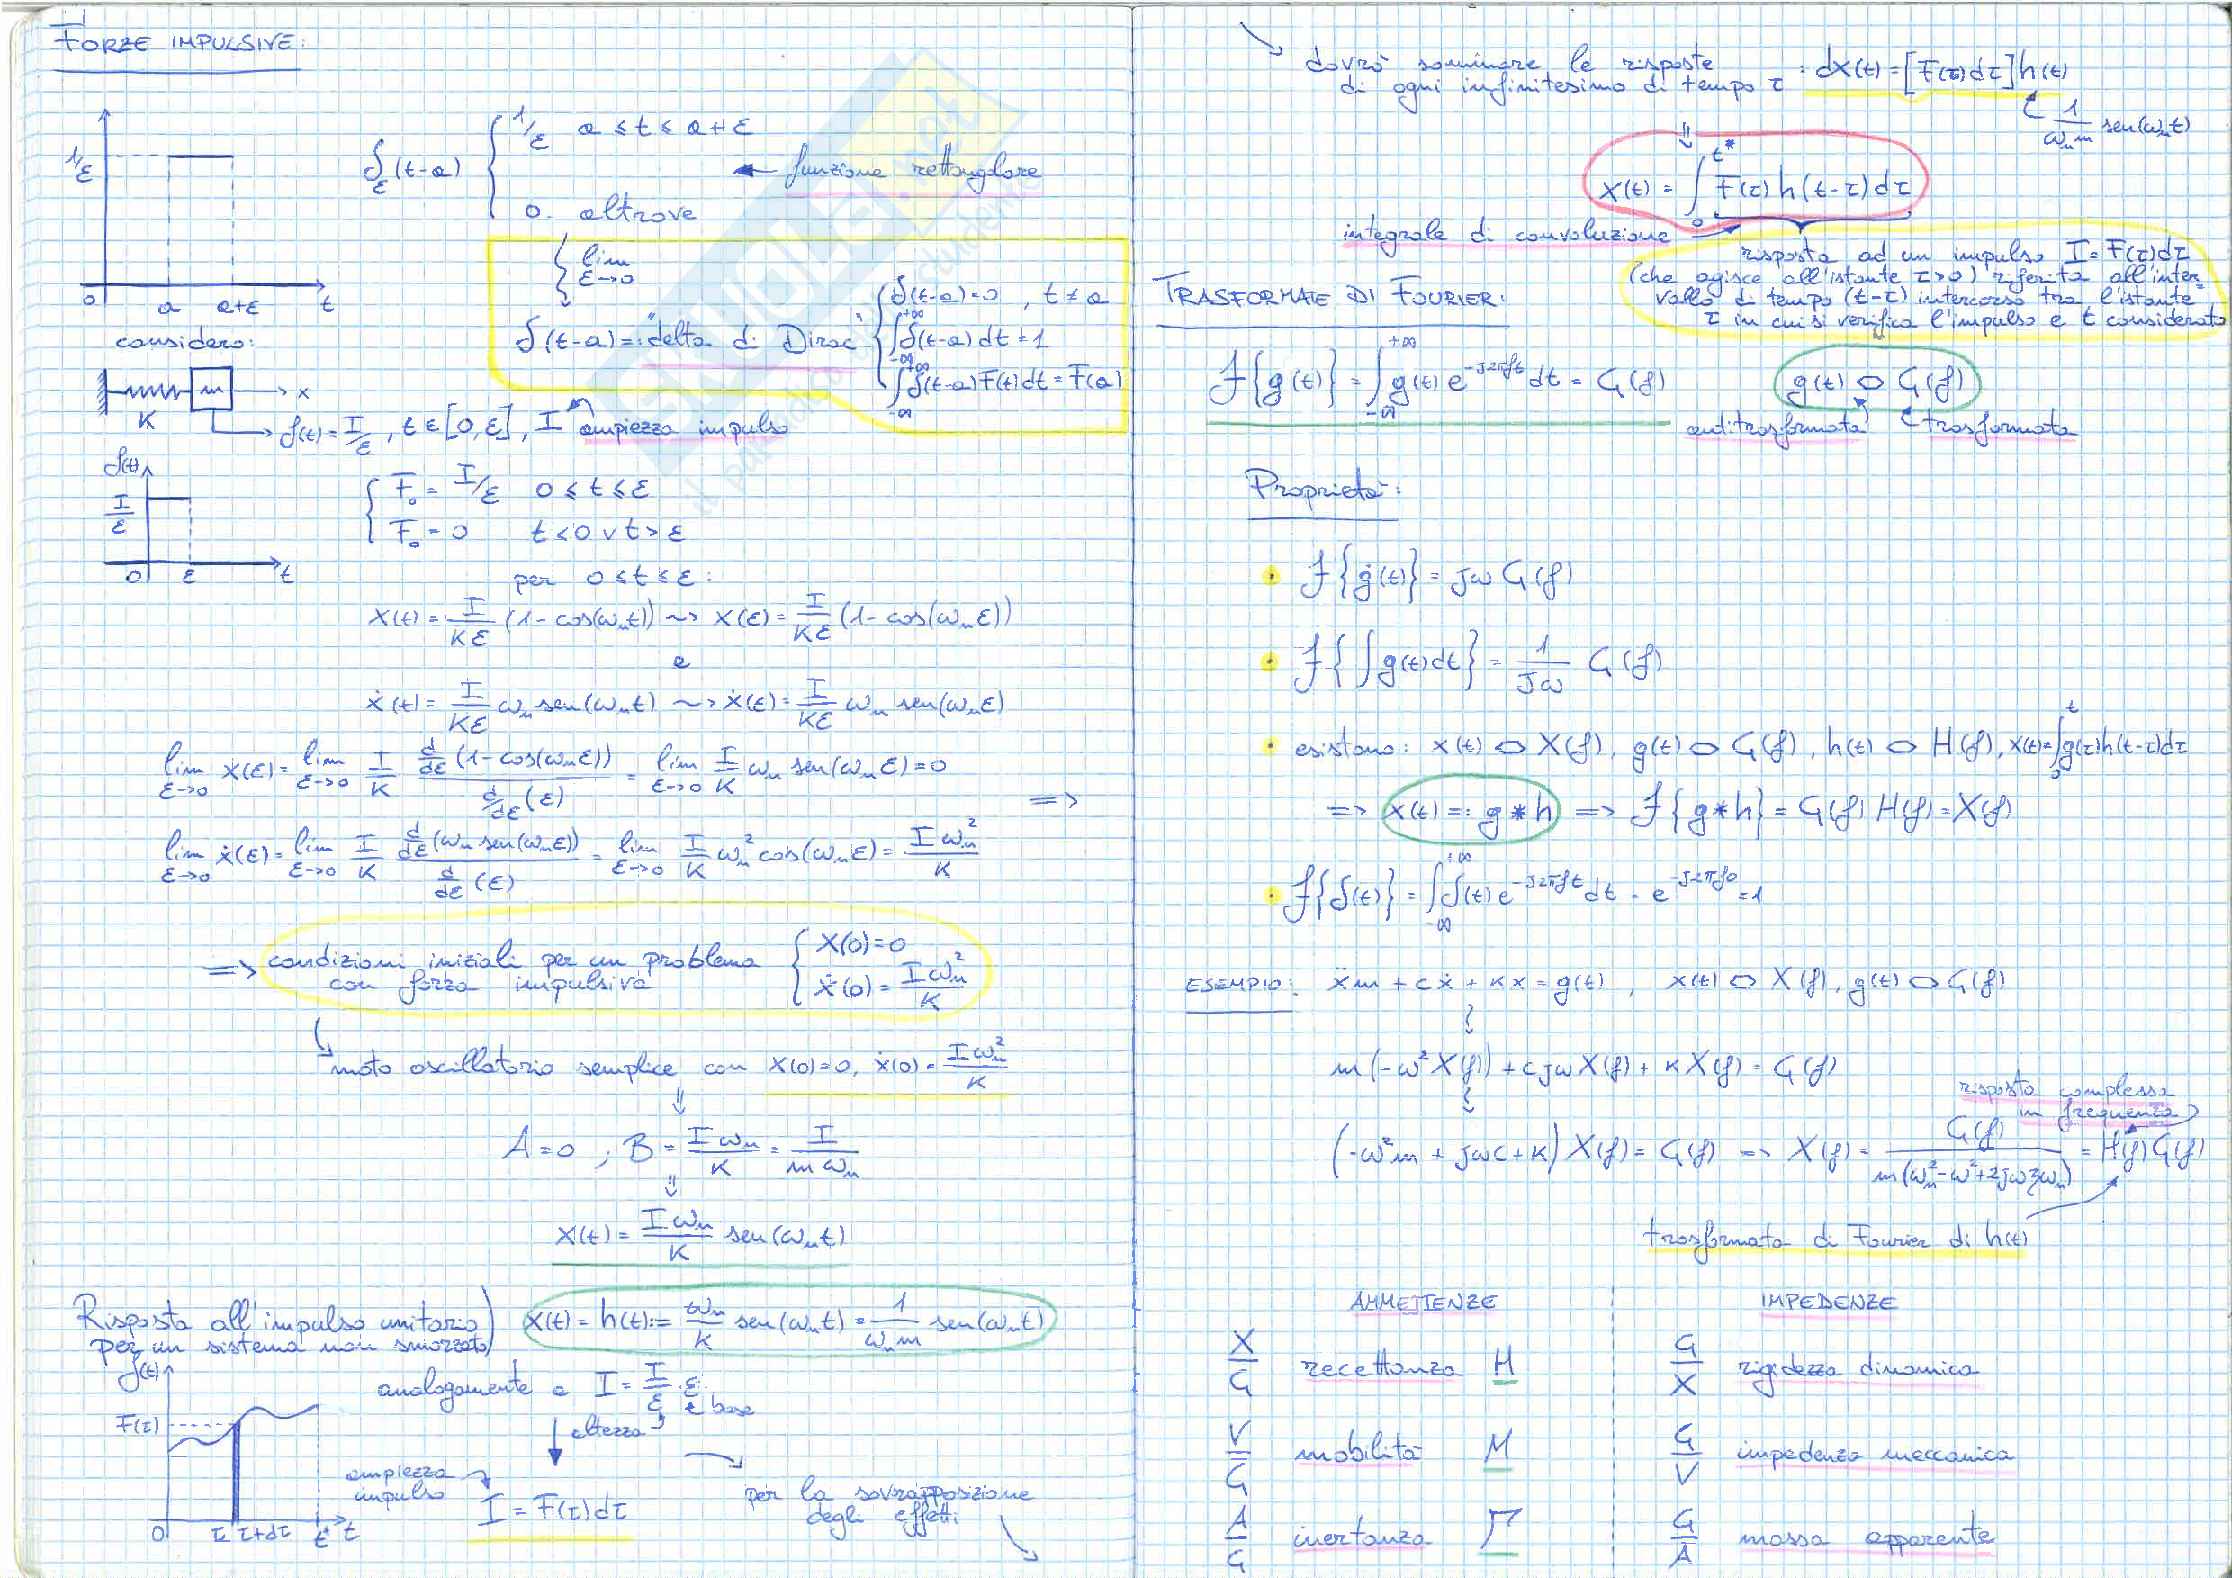 FORZE IMPULSIVE:
1/ε
0 a a+ε t
δ_ε(t-a) { 1/ε a ≤ t ≤ a+ε
0 altrove
← funzione rettangolare
lim ε→0
δ(t-a) =: "delta di Dirac" { δ(t-a)=0, t≠a
∫_{-∞}^{+∞} δ(t-a) dt = 1
∫_{-∞}^{+∞} δ(t-a) F(t) dt = F(a)
considero:
K m → x
f(t) = I/ε, t ∈ [0,ε], I ampiezza impulso
f(t)
I/ε
0 ε t
{ F₀ = I/ε 0 ≤ t ≤ ε
F₀ = 0 t<0 ∨ t>ε
per 0 ≤ t ≤ ε:
x(t) = I/(Kε) (1-cos(ωₙt)) ~> x(ε) = I/(Kε) (1-cos(ωₙε))
e
ẋ(t) = I/(Kε) ωₙ sen(ωₙt) ~> ẋ(ε) = I/(Kε) ωₙ sen(ωₙε)
lim_{ε→0} x(ε) = lim_{ε→0} I/K · d/dε(1-cos(ωₙε)) / d/dε(ε) = lim_{ε→0} I/K ωₙ sen(ωₙε) = 0
=>
lim_{ε→0} ẋ(ε) = lim_{ε→0} I/K · d/dε(ωₙ sen(ωₙε)) / d/dε(ε) = lim_{ε→0} I/K ωₙ² cos(ωₙε) = Iωₙ²/K
=> condizioni iniziali per un problema con forza impulsiva { x(0)=0
ẋ(0) = Iωₙ²/K
↳ moto oscillatorio semplice con x(0)=0, ẋ(0) = Iωₙ²/K
⇓
A=0 ; B = Iωₙ/K = I/(mωₙ)
⇓
x(t) = Iωₙ/K sen(ωₙt)
Risposta all'impulso unitario
per un sistema non smorzato)
x(t) = h(t) := ωₙ/K sen(ωₙt) = 1/(ωₙm) sen(ωₙt)
f(t)
F(τ)
0 τ τ+dτ t* t
analogamente a I = I/ε · ε
base
altezza
ampiezza
impulso
I = F(τ)dτ
per la sovrapposizione
degli effetti
dovrò sommare le risposte
di ogni infinitesimo di tempo τ : dx(t) = [F(τ)dτ] h(t)
1/(ωₙm) sen(ωₙt)
⇓
x(t) = ∫₀^{t*} F(τ) h(t-τ) dτ
integrale di convoluzione
risposta ad un impulso I = F(τ)dτ
(che agisce all'istante τ>0) riferita all'inter
vallo di tempo (t-τ) intercorso tra l'istante
τ in cui si verifica l'impulso e t considerato
TRASFORMATE DI FOURIER:
F{g(t)} = ∫_{-∞}^{+∞} g(t) e^{-j2πft} dt = G(f)
g(t) ⬭ G(f)
antitrasformata trasformata
Proprietà:
• F{ġ(t)} = jω G(f)
• F{∫g(t)dt} = 1/(jω) G(f)
• esistono: x(t) ⬭ X(f), g(t) ⬭ G(f), h(t) ⬭ H(f), x(t) = ∫₀^t g(τ)h(t-τ)dτ
=> x(t) =: g*h => F{g*h} = G(f) H(f) = X(f)
• F{δ(t)} = ∫_{-∞}^{+∞} δ(t) e^{-j2πft} dt = e^{-j2πf0} = 1
ESEMPIO: ẍm + cẋ + Kx = g(t), x(t) ⬭ X(f), g(t) ⬭ G(f)
m(-ω²X(f)) + cjωX(f) + KX(f) = G(f)
risposta complessa
in frequenza
(-ω²m + jωc + K) X(f) = G(f) => X(f) = G(f) / m(ωₙ²-ω²+2jωξωₙ) = H(f) G(f)
trasformata di Fourier di h(t)
AMMETTENZE IMPEDENZE
X/G recettanza H G/X rigidezza dinamica
V/G mobilità M G/V impedenza meccanica
A/G inertanza Γ G/A massa apparente